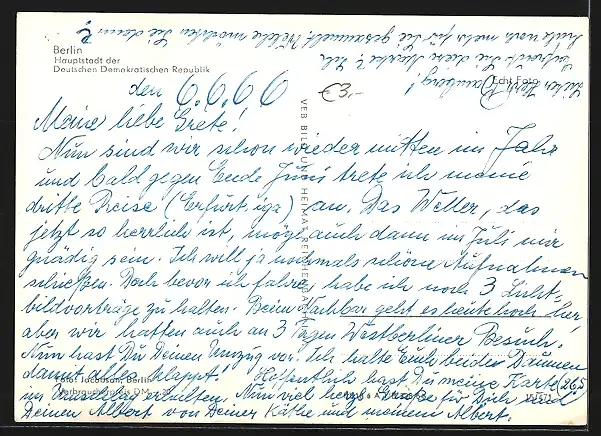 Berlin
Hauptstadt der
Deutschen Demokratischen Republik
Echt Foto
Lieber Herr
Erfreut Sie diese Karte? Ich
habe noch mehr für Sie gesammelt. Welche möchten Sie denn?
den 6.6.66
€3,-
Meine liebe Grete!
Nun sind wir schon wieder mitten im Jahr
und bald gegen Ende Juni trete ich meine
dritte Reise (Erfurt, iga) an. Das Wetter, das
jetzt so herrlich ist, möge auch dann im Juli mir
gnädig sein. Ich will ja nochmals schöne Aufnahmen
schießen. Doch bevor ich fahre, habe ich noch 3 Licht-
bildvorträge zu halten. Beim Nachbar geht es heute hoch her,
aber wir hatten auch an 3 Tagen Westberliner Besuch.
Nun hast Du Deinen Umzug vor. Ich halte Euch beiden Daumen
damit alles klappt. Hoffentlich hast Du meine Karte 26.5
im erhalten. Nun viel herzl. Grüße für Dich und
Deinen Albert von Deiner Käthe und meinem Albert.
VEB BILD UND HEIMAT REICHENBACH
Foto: Jacobsen, Berlin